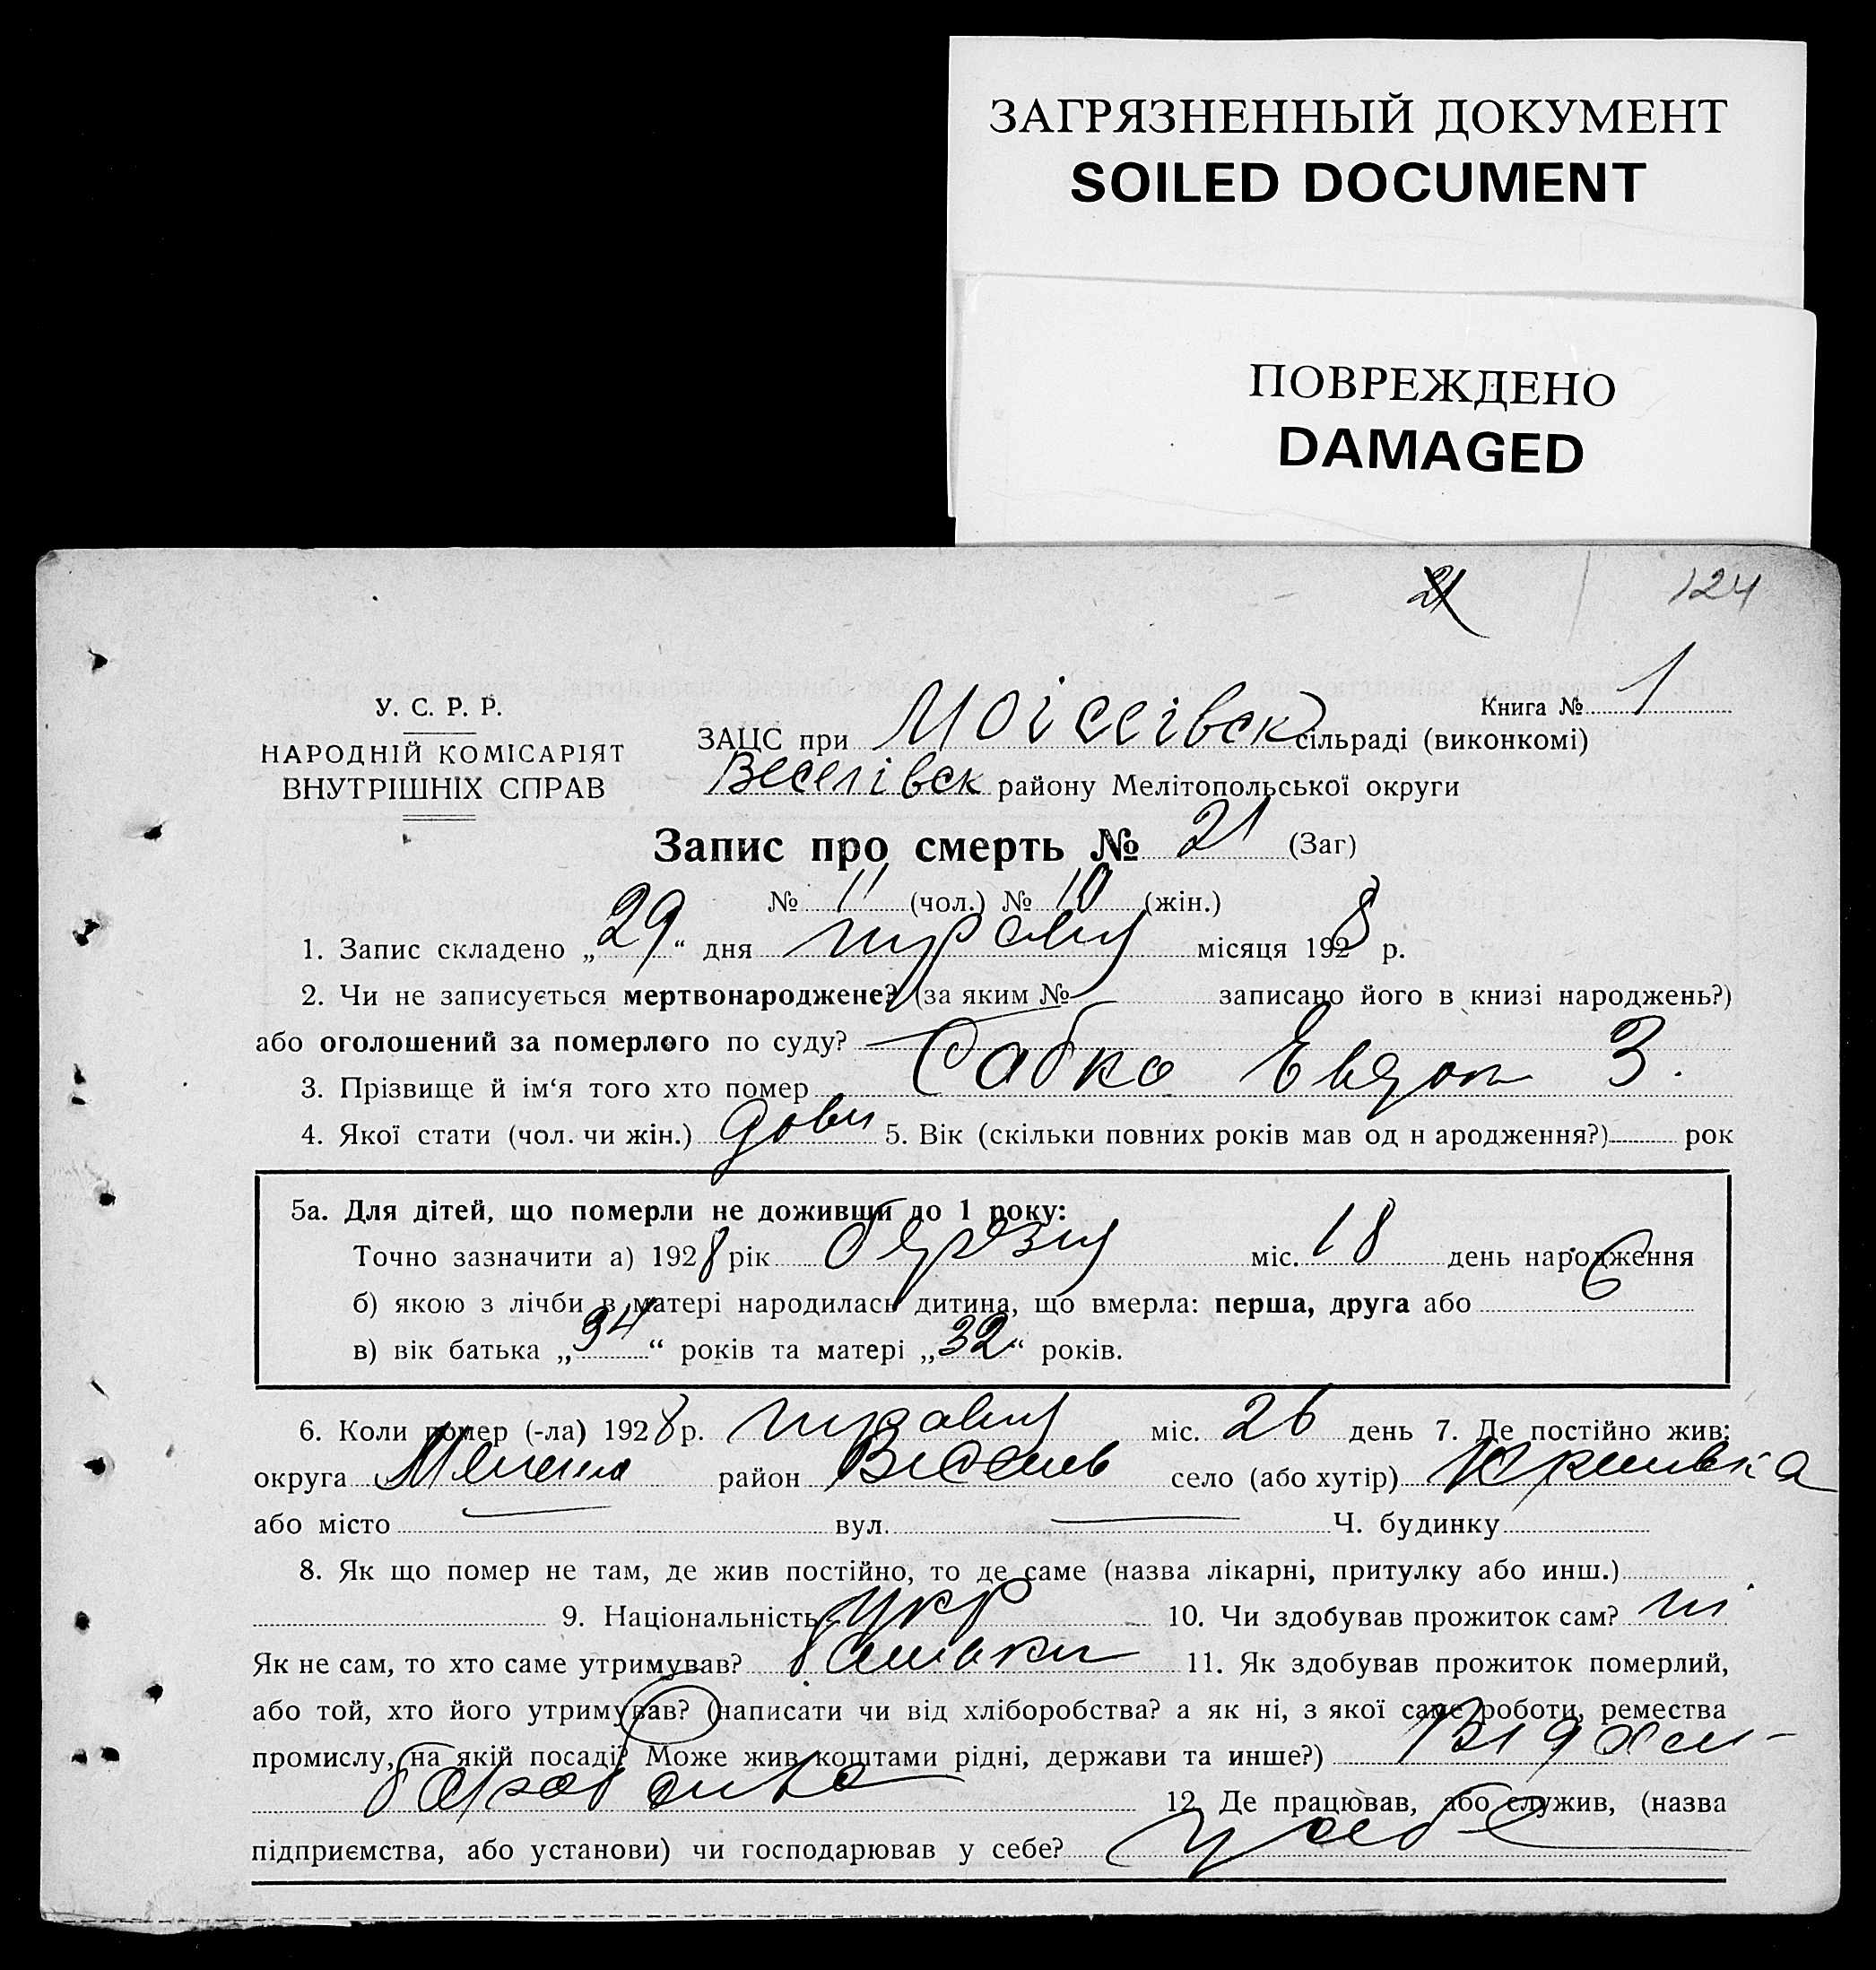 ЗАГРЯЗНЕННЫЙ ДОКУМЕНТ
SOILED DOCUMENT
ПОВРЕЖДЕНО
DAMAGED
21 124
У. С. Р. Р.
НАРОДНІЙ КОМІСАРІЯТ
ВНУТРІШНІХ СПРАВ
Книга № 1
ЗАЦС при Моісеівск сільраді (виконкомі)
Веселівск району Мелітопольської округи
Запис про смерть № 21 (Заг)
№ 11 (чол.) № 10 (жін.)
1. Запис складено „29“ дня травня місяця 1928 р.
2. Чи не записується мертвонароджене? (за яким № записано його в книзі народжень?)
або оголошений за померлого по суду?
3. Прізвище й ім‘я того хто помер Сабко Евдок З.
4. Якої стати (чол. чи жін.) 5. Вік (скільки повних років мав од н ародження?) рок
5а. Для дітей, що померли не доживши до 1 року:
Точно зазначити а) 1928 рік березня міс. 18 день народження
б) якою з лічби в матері народилась дитина, що вмерла: перша, друга або 6
в) вік батька „34“ років та матері „32“ років.
6. Коли помер (-ла) 1928 р. травня міс. 26 день 7. Де постійно жив:
округа район село (або хутір)
або місто вул. Ч. будинку
8. Як що помер не там, де жив постійно, то де саме (назва лікарні, притулку або инш.)
9. Національність укр 10. Чи здобував прожиток сам? ні
Як не сам, то хто саме утримував? батьки 11. Як здобував прожиток померлий,
або той, хто його утримував? (написати чи від хліборобства? а як ні, з якої саме роботи, ремества
промислу, на якій посаді? Може жив коштами рідні, держави та инше?) Від хлі-
боробства 12. Де працював, або служив, (назва
підприємства, або установи) чи господарював у себе? у себе